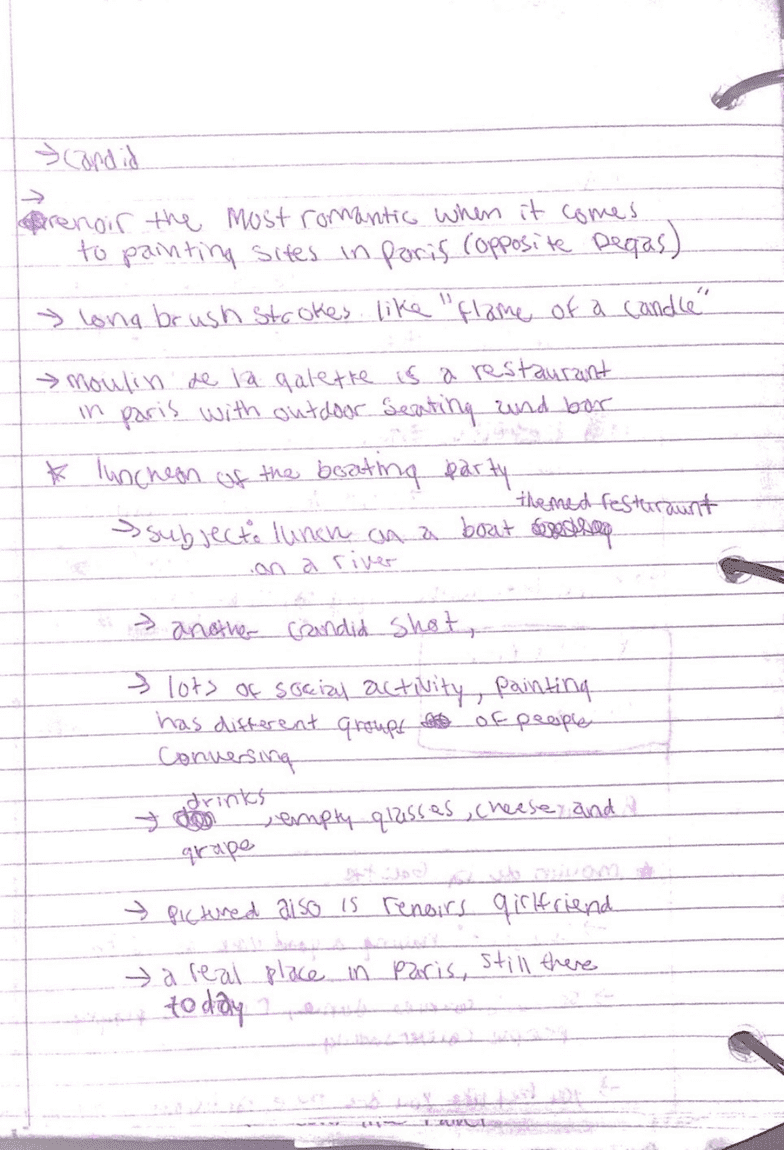 → candid
→
renoir the most romantic when it comes
to painting sites in paris (opposite Degas)
→ long brush strokes like "flame of a candle"
→ moulin de la galette is a restaurant
in paris with outdoor seating and bar
* luncheon of the boating party
themed resturaunt
→ subject: lunch on a boat
on a river
→ another candid shot,
→ lots of social activity, painting
has different groups of people
conversing
drinks
→ , empty glasses, cheese and
grape
→ pictured also is renoirs girlfriend
→ a real place in paris, still there
today